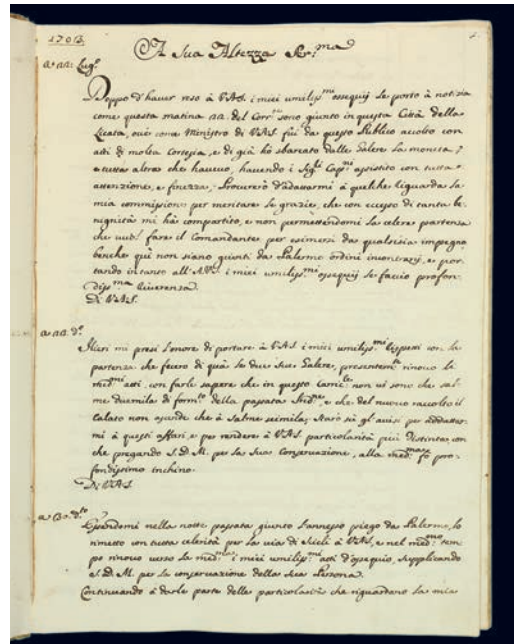 1703.
A Sua Altezza Ser.ma
a 22: Lug.o
Doppo d'haver reso à V.A.S. i miei umiliss.mi ossequij le porto à notizia
come questa matina 22. del Corr.te sono giunto in questa Città della
Licata, ove come Ministro di V.A.S. fui da questo Publico accolto con
atti di molta cortesia, e di già hò sbarcato dalle Galere la moneta,
e tutto altro che havevo, havendo i Sig.ri Cap.ni assistito con tutta
attenzione, e finezza, Procurerò d'adattarmi à quelche riguarda la
mia commissione per meritare le grazie, che con eccesso di tanta be-
nignità mi hà compartito, e non permettendomi la celere partenza
che fare il Comandante per esimersi da qualsisia impegno
benche qui non siano giunti da Palermo ordini incontrarij, e por-
tando intanto all'A.V.S. i miei umiliss.mi ossequij le faccio profon-
diss.ma riverenza.
Di V.A.S.
a 22. d.o
Hieri mi presi l'onore di portare à V.A.S. i miei umiliss.mi rispetti con la
partenza che fecero di quà le due sue Galere, presentem.te rinovo li
med.mi atti, con farle sapere che in questo Caric.re non vi sono che sal-
me duemila di form.to della passata Ind.ne, e che del nuovo raccolto il
calato non ascende che à salme seimila, Starò sù gl'avisi per addattar-
mi à questi affari, e per rendere à V.A.S. particolarità più distinta, con
che pregando S.D.M. per la Sua Conservazione, alla med.ma fò pro-
fondissimo inchino.
Di V.A.S.
a 30. d.to
Essendomi nella notte passata giunto l'annesso piego da Palermo, lo
rimetto con tutta celerità per la via di Sicli à V.A.S., e nel med.mo tem-
po rinovo verso la med.ma i miei umiliss.mi atti d'ossequio, supplicando
S.D.M. per la conservazione della Sua Persona.
Continuando à darle parte delle particolarità che riguardano la mia